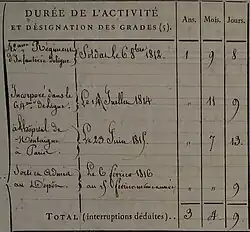 DURÉE DE L'ACTIVITÉ
ET DÉSIGNATION DES GRADES (5).
Ans. Mois. Jours.
Régiment
Soldat le 6 8bre 1812. " 9 8
Incorporé dans le
64me de ligne
Le 14 Juillet 1814 " 11 9
à l'hôpital de
Montaigu
à Paris
Le 23 Juin 1815 " 7 13.
au
Dépôt
Le 6 février 1816
au 15 février même année " " 9
TOTAL (interruptions déduites).. 3 4 9